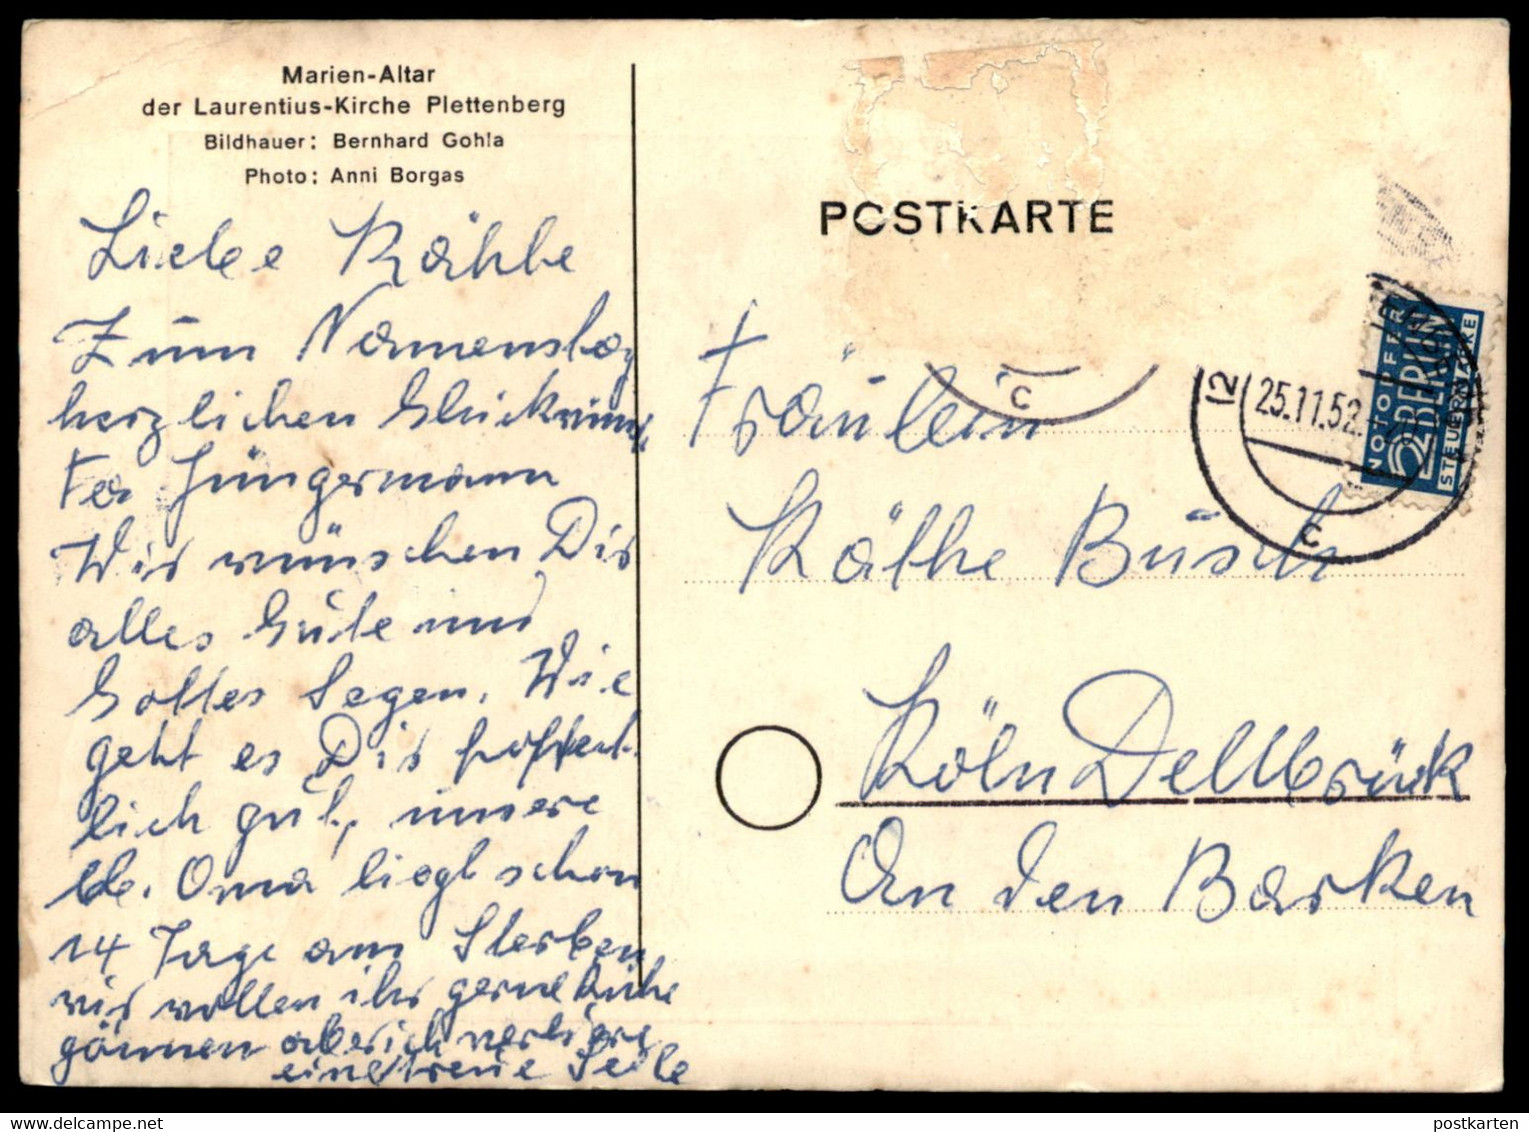 Marien-Altar
der Laurentius-Kirche Plettenberg
Bildhauer: Bernhard Gohla
Photo: Anni Borgas
Liebe Käthe
Zum Namenstag
herzlichen Glückwunsch
Fa Jüngermann
Wir wünschen Dir
alles Gute und
Gottes Segen. Wie
geht es Dir hoffent
lich gut, unsere
lb. Oma liegt schon
14 Tage am Sterben
wir wollen ihr gerne Ruhe
gönnen aber ich verliere
eine treue Seele
POSTKARTE
Fräulein
Käthe Büsch
Köln Dellbrück
An den Barken
C
12
25.11.52
C
NOTOPFER
2 BERLIN
STEUERMARKE
delcampe.net
postkarten